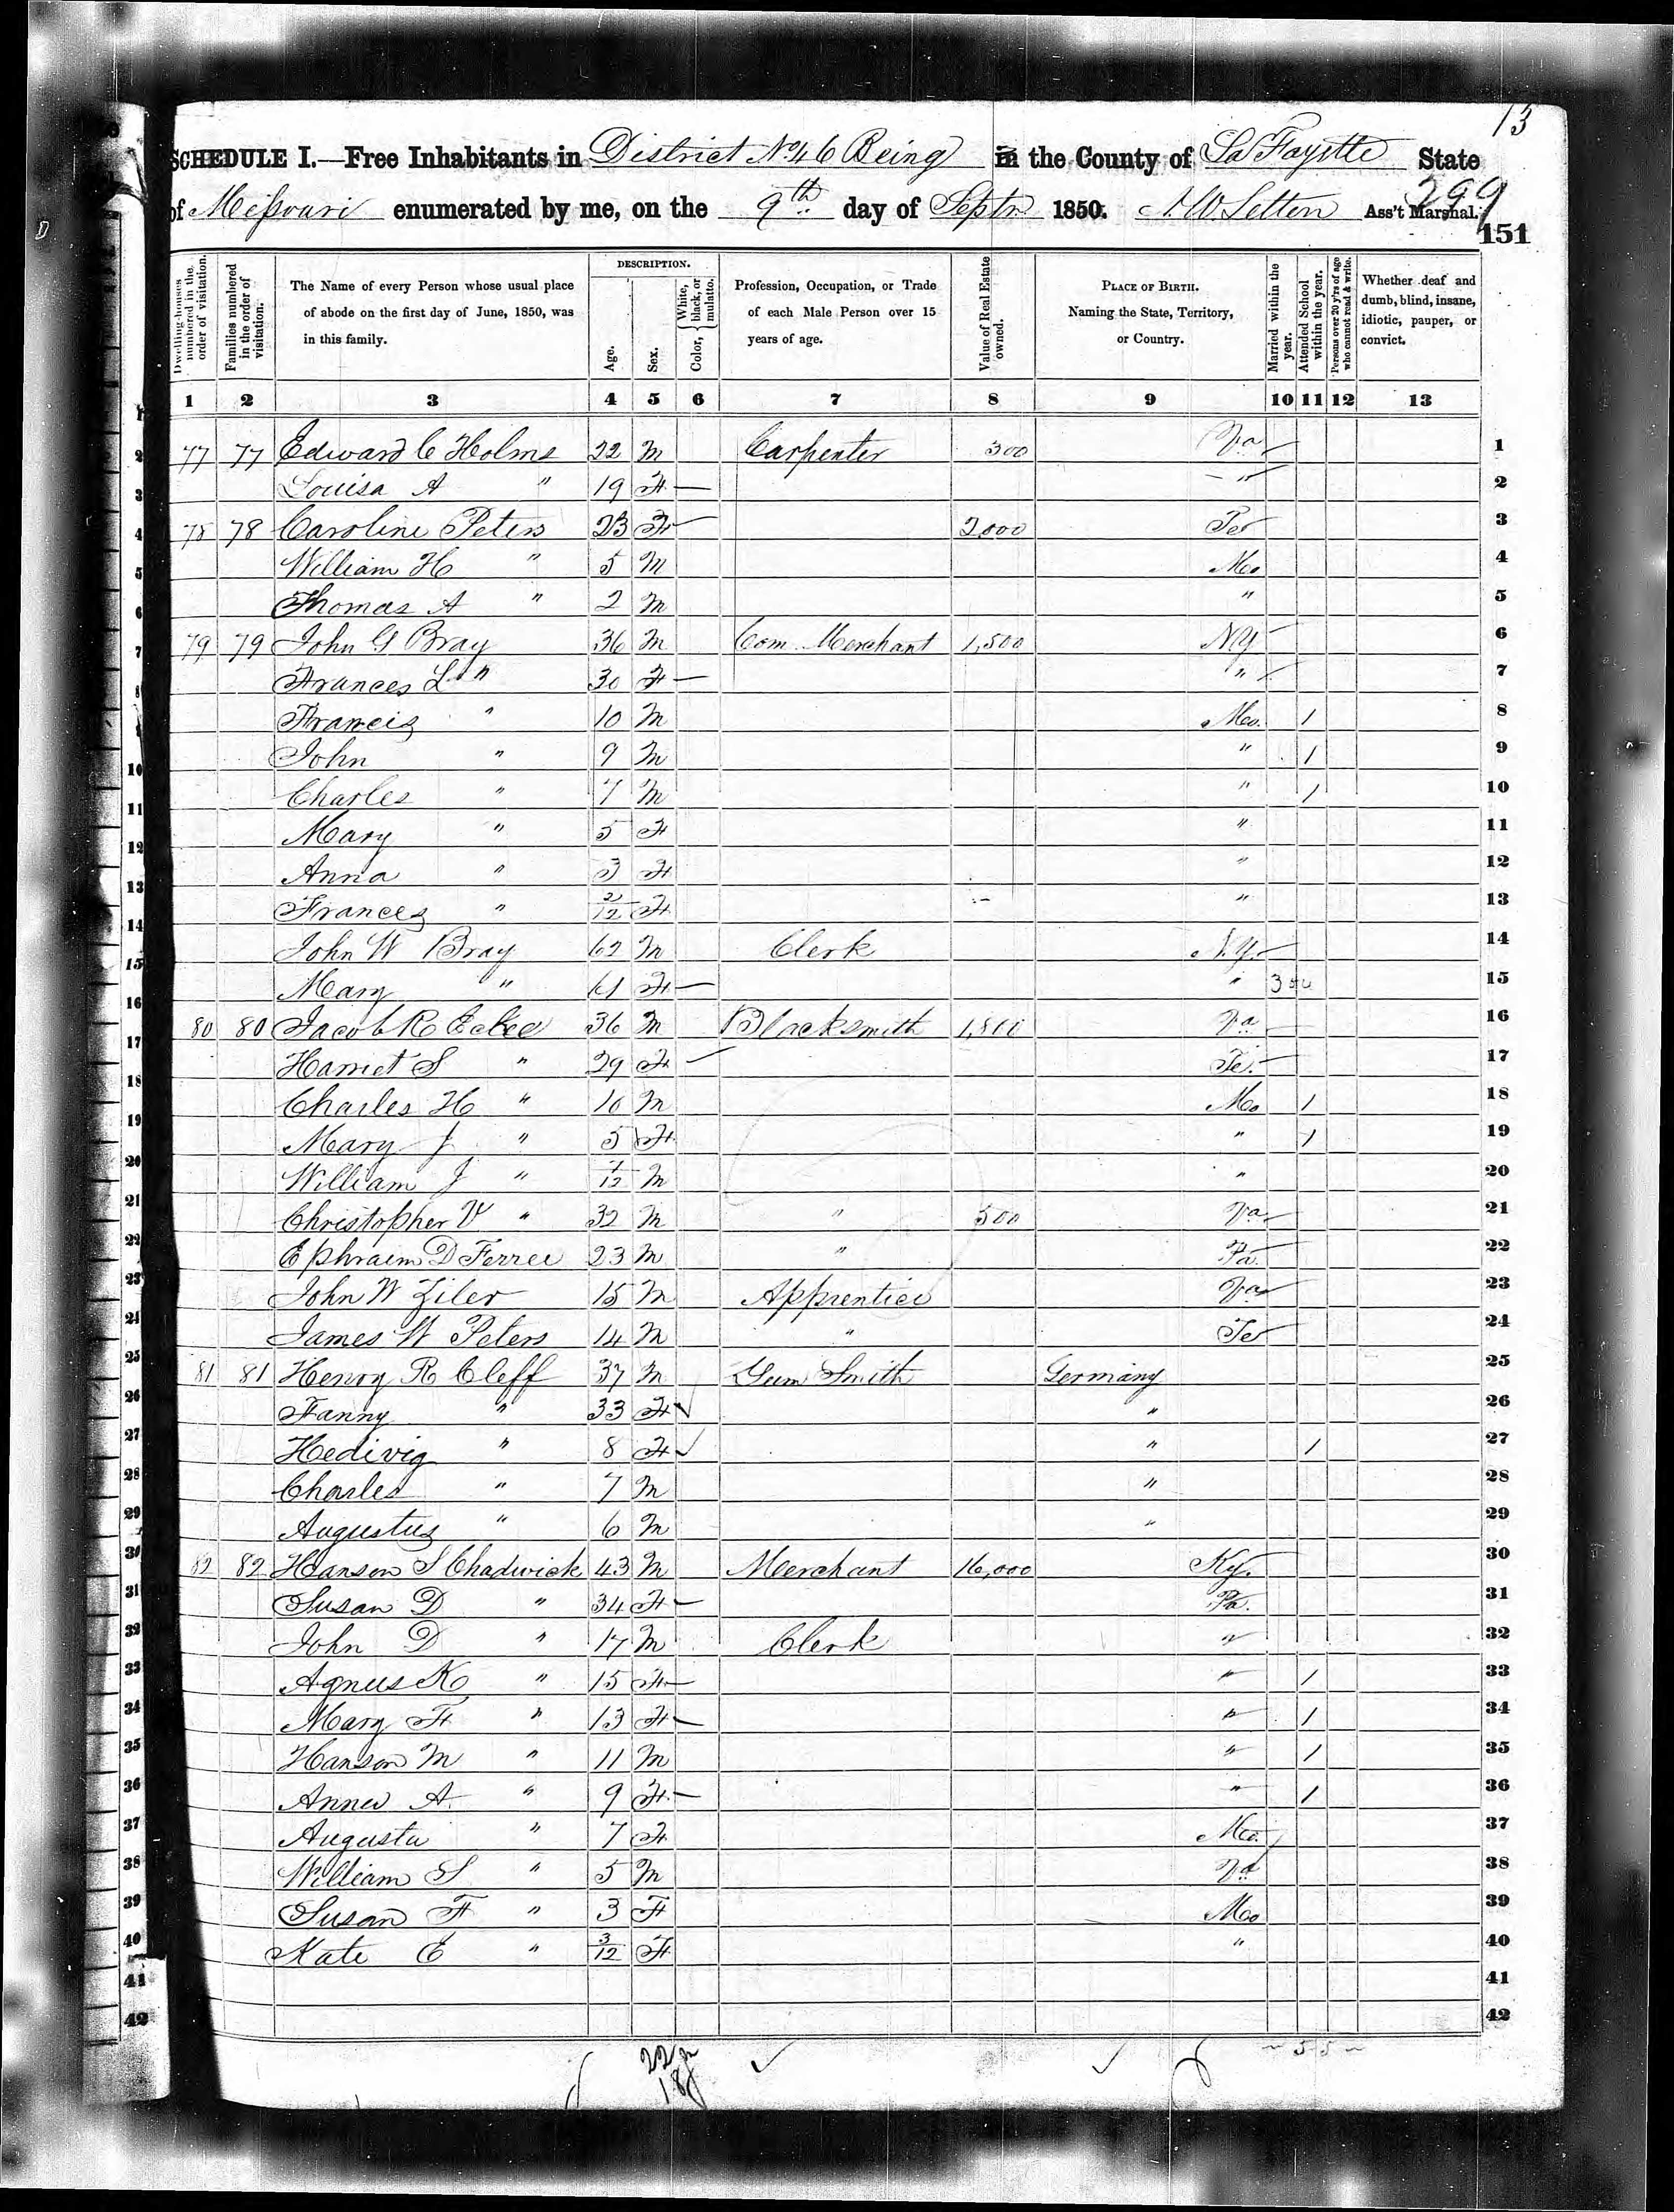 13
SCHEDULE I.—Free Inhabitants in District No 46 Being in the County of La Fayette State
299
of Missouri enumerated by me, on the 9th day of Septr 1850. Ass't Marshal.
151
Dwelling-houses numbered in the order of visitation.
Families numbered in the order of visitation.
The Name of every Person whose usual place of abode on the first day of June, 1850, was in this family.
DESCRIPTION.
Age.
Sex.
Color, { White, black, or mulatto.
Profession, Occupation, or Trade of each Male Person over 15 years of age.
Value of Real Estate owned.
PLACE OF BIRTH. Naming the State, Territory, or Country.
Married within the year.
Attended School within the year.
Persons over 20 y'rs of age who cannot read & write.
Whether deaf and dumb, blind, insane, idiotic, pauper, or convict.
1 2 3 4 5 6 7 8 9 10 11 12 13
77 77 Edward C Holms 22 M Carpenter 300 Va 1
Louisa A " 19 F — " 2
78 78 Caroline Peters 23 F — 2,000 Te 3
William H " 5 M Mo 4
Thomas A " 2 M " 5
79 79 John G Bray 36 M Com. Merchant 1,500 NY 6
Frances L " 30 F — " 7
Francis " 10 M Mo. 1 8
John " 9 M " 1 9
Charles " 7 M " 1 10
Mary " 5 F " 11
Anna " 3 F " 12
Frances " 2/12 F " 13
John W Bray 62 M Clerk N.Y. 14
Mary " 61 F — " 15
80 80 Jacob R 36 M Blacksmith 1,800 Va 16
Harriet S " 29 F Te. 17
Charles H " 10 M Mo 1 18
Mary J " 5 F " 1 19
William J " 1/12 M " 20
Christopher V " 32 M " 500 Va 21
Ephraim D Ferree 23 M " Pa. 22
John W Ziler 15 M Apprentice Va 23
James W Peters 14 M " Te 24
81 81 Henry R Cleff 37 M Gun Smith Germany 25
Fanny " 33 F " 26
Hedivig " 8 F " 1 27
Charles " 7 M " 28
Augustus " 6 M " 29
82 82 Hanson S Chadwick 43 M Merchant 16,000 Ky. 30
Susan D " 34 F — Pa. 31
John D " 17 M Clerk " 32
Agnus K " 15 F — " 1 33
Mary F " 13 F — " 1 34
Hanson M " 11 M " 1 35
Anner A. " 9 F — " 1 36
Augusta " 7 F Mo. 37
William S " 5 M Va 38
Susan F " 3 F Mo 39
Kate E " 3/12 F " 40
41
42
22 m
18 f
55